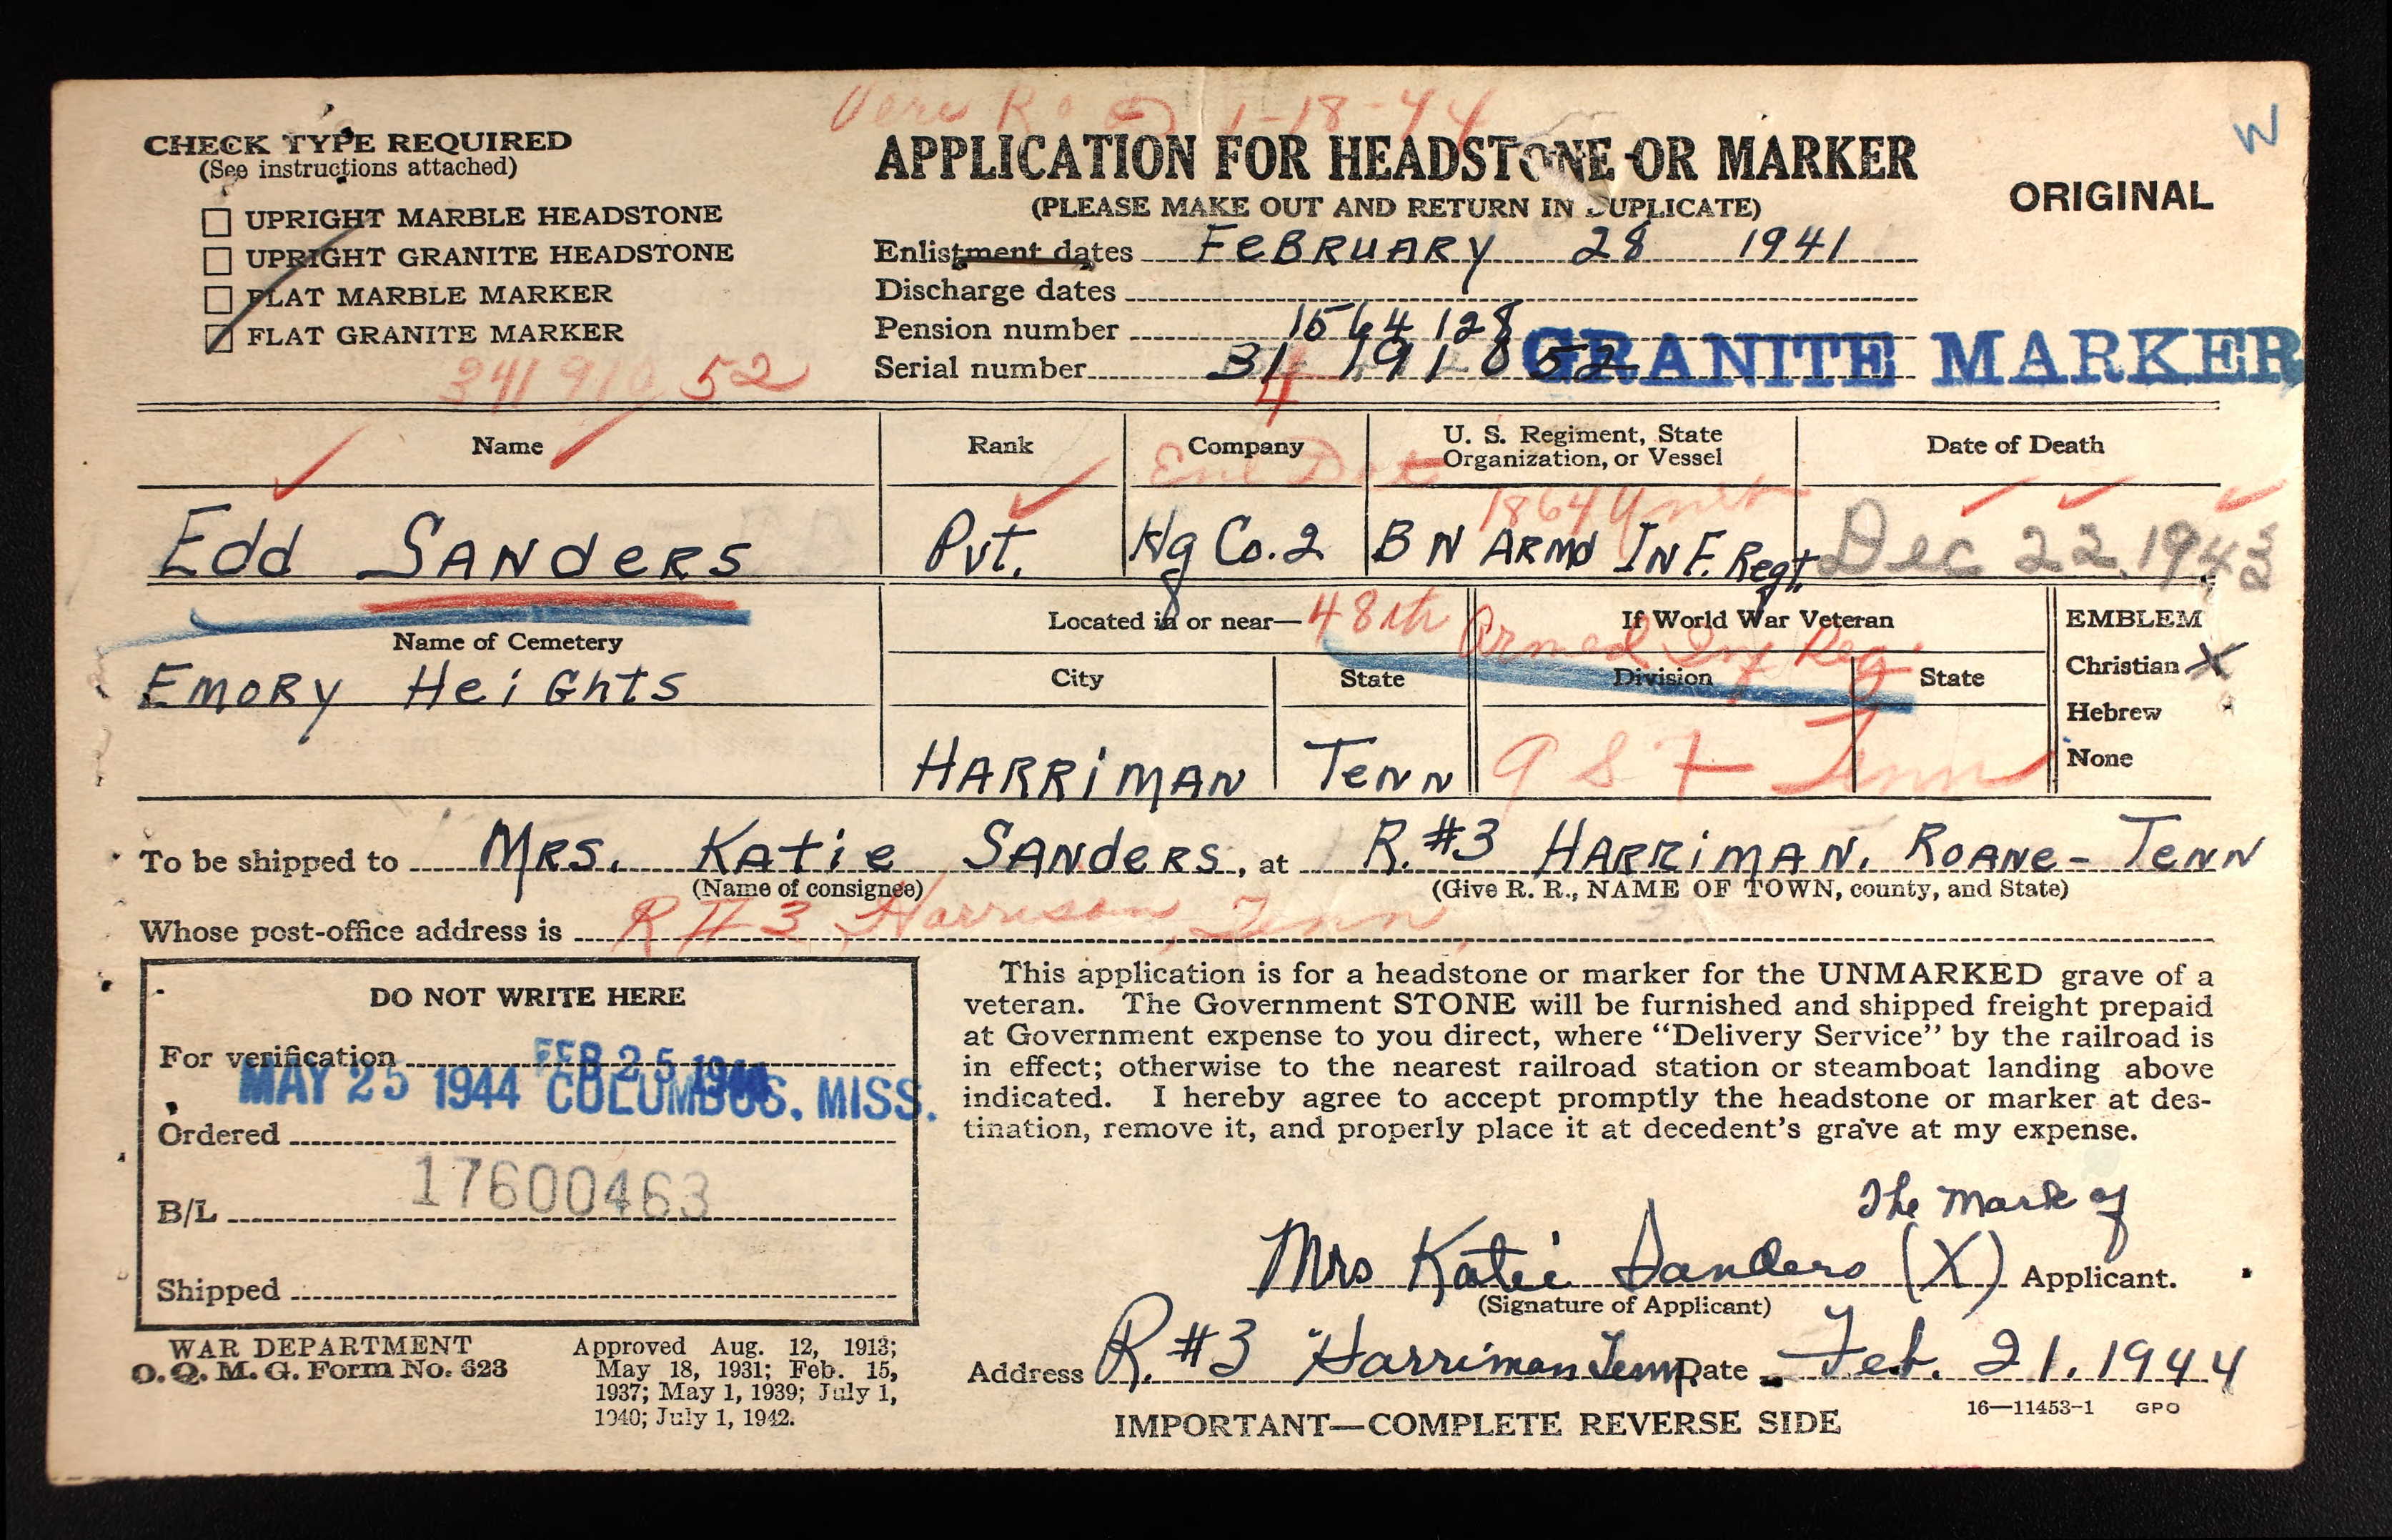 1-18-44
W
CHECK TYPE REQUIRED
(See instructions attached)
UPRIGHT MARBLE HEADSTONE
UPRIGHT GRANITE HEADSTONE
FLAT MARBLE MARKER
FLAT GRANITE MARKER
APPLICATION FOR HEADSTONE OR MARKER
(PLEASE MAKE OUT AND RETURN IN DUPLICATE)
ORIGINAL
Enlistment dates FeBRUARY 28 1941
Discharge dates
Pension number 1564128
Serial number 31 191 052
4
GRANITE MARKER
34191052
Name
Rank
Company
U. S. Regiment, State
Organization, or Vessel
Date of Death
1864 Unit
Edd SANdeRS
Pvt.
Hq Co. 2
BN ARMd INF. Regt.
Dec 22, 1943
Name of Cemetery
EmORy HeiGhts
Located in or near—
48th Armed Inf Reg
If World War Veteran
City
State
Division
State
HARRiMAN
TeNN
Tenn
EMBLEM
Christian X
Hebrew
None
To be shipped to MRS. KAtie SANdeRS, at R. #3 HARRiMAN. ROANe- TeNN
(Name of consignee)
(Give R. R., NAME OF TOWN, county, and State)
Whose post-office address is R #3 Harrison, Tenn,
DO NOT WRITE HERE
For verification FEB 25 1944
MAY 25 1944 COLUMBUS, MISS.
Ordered
B/L 17600463
Shipped
This application is for a headstone or marker for the UNMARKED grave of a
veteran. The Government STONE will be furnished and shipped freight prepaid
at Government expense to you direct, where "Delivery Service" by the railroad is
in effect; otherwise to the nearest railroad station or steamboat landing above
indicated. I hereby agree to accept promptly the headstone or marker at des-
tination, remove it, and properly place it at decedent's grave at my expense.
The mark of
Mrs Katie Sanders (X) Applicant.
(Signature of Applicant)
Address R. #3 Harriman Tenn. Date Feb. 21. 1944
IMPORTANT—COMPLETE REVERSE SIDE
16—11453-1 GPO
WAR DEPARTMENT
O. Q. M. G. Form No. 623
Approved Aug. 12, 1913;
May 18, 1931; Feb. 15,
1937; May 1, 1939; July 1,
1940; July 1, 1942.